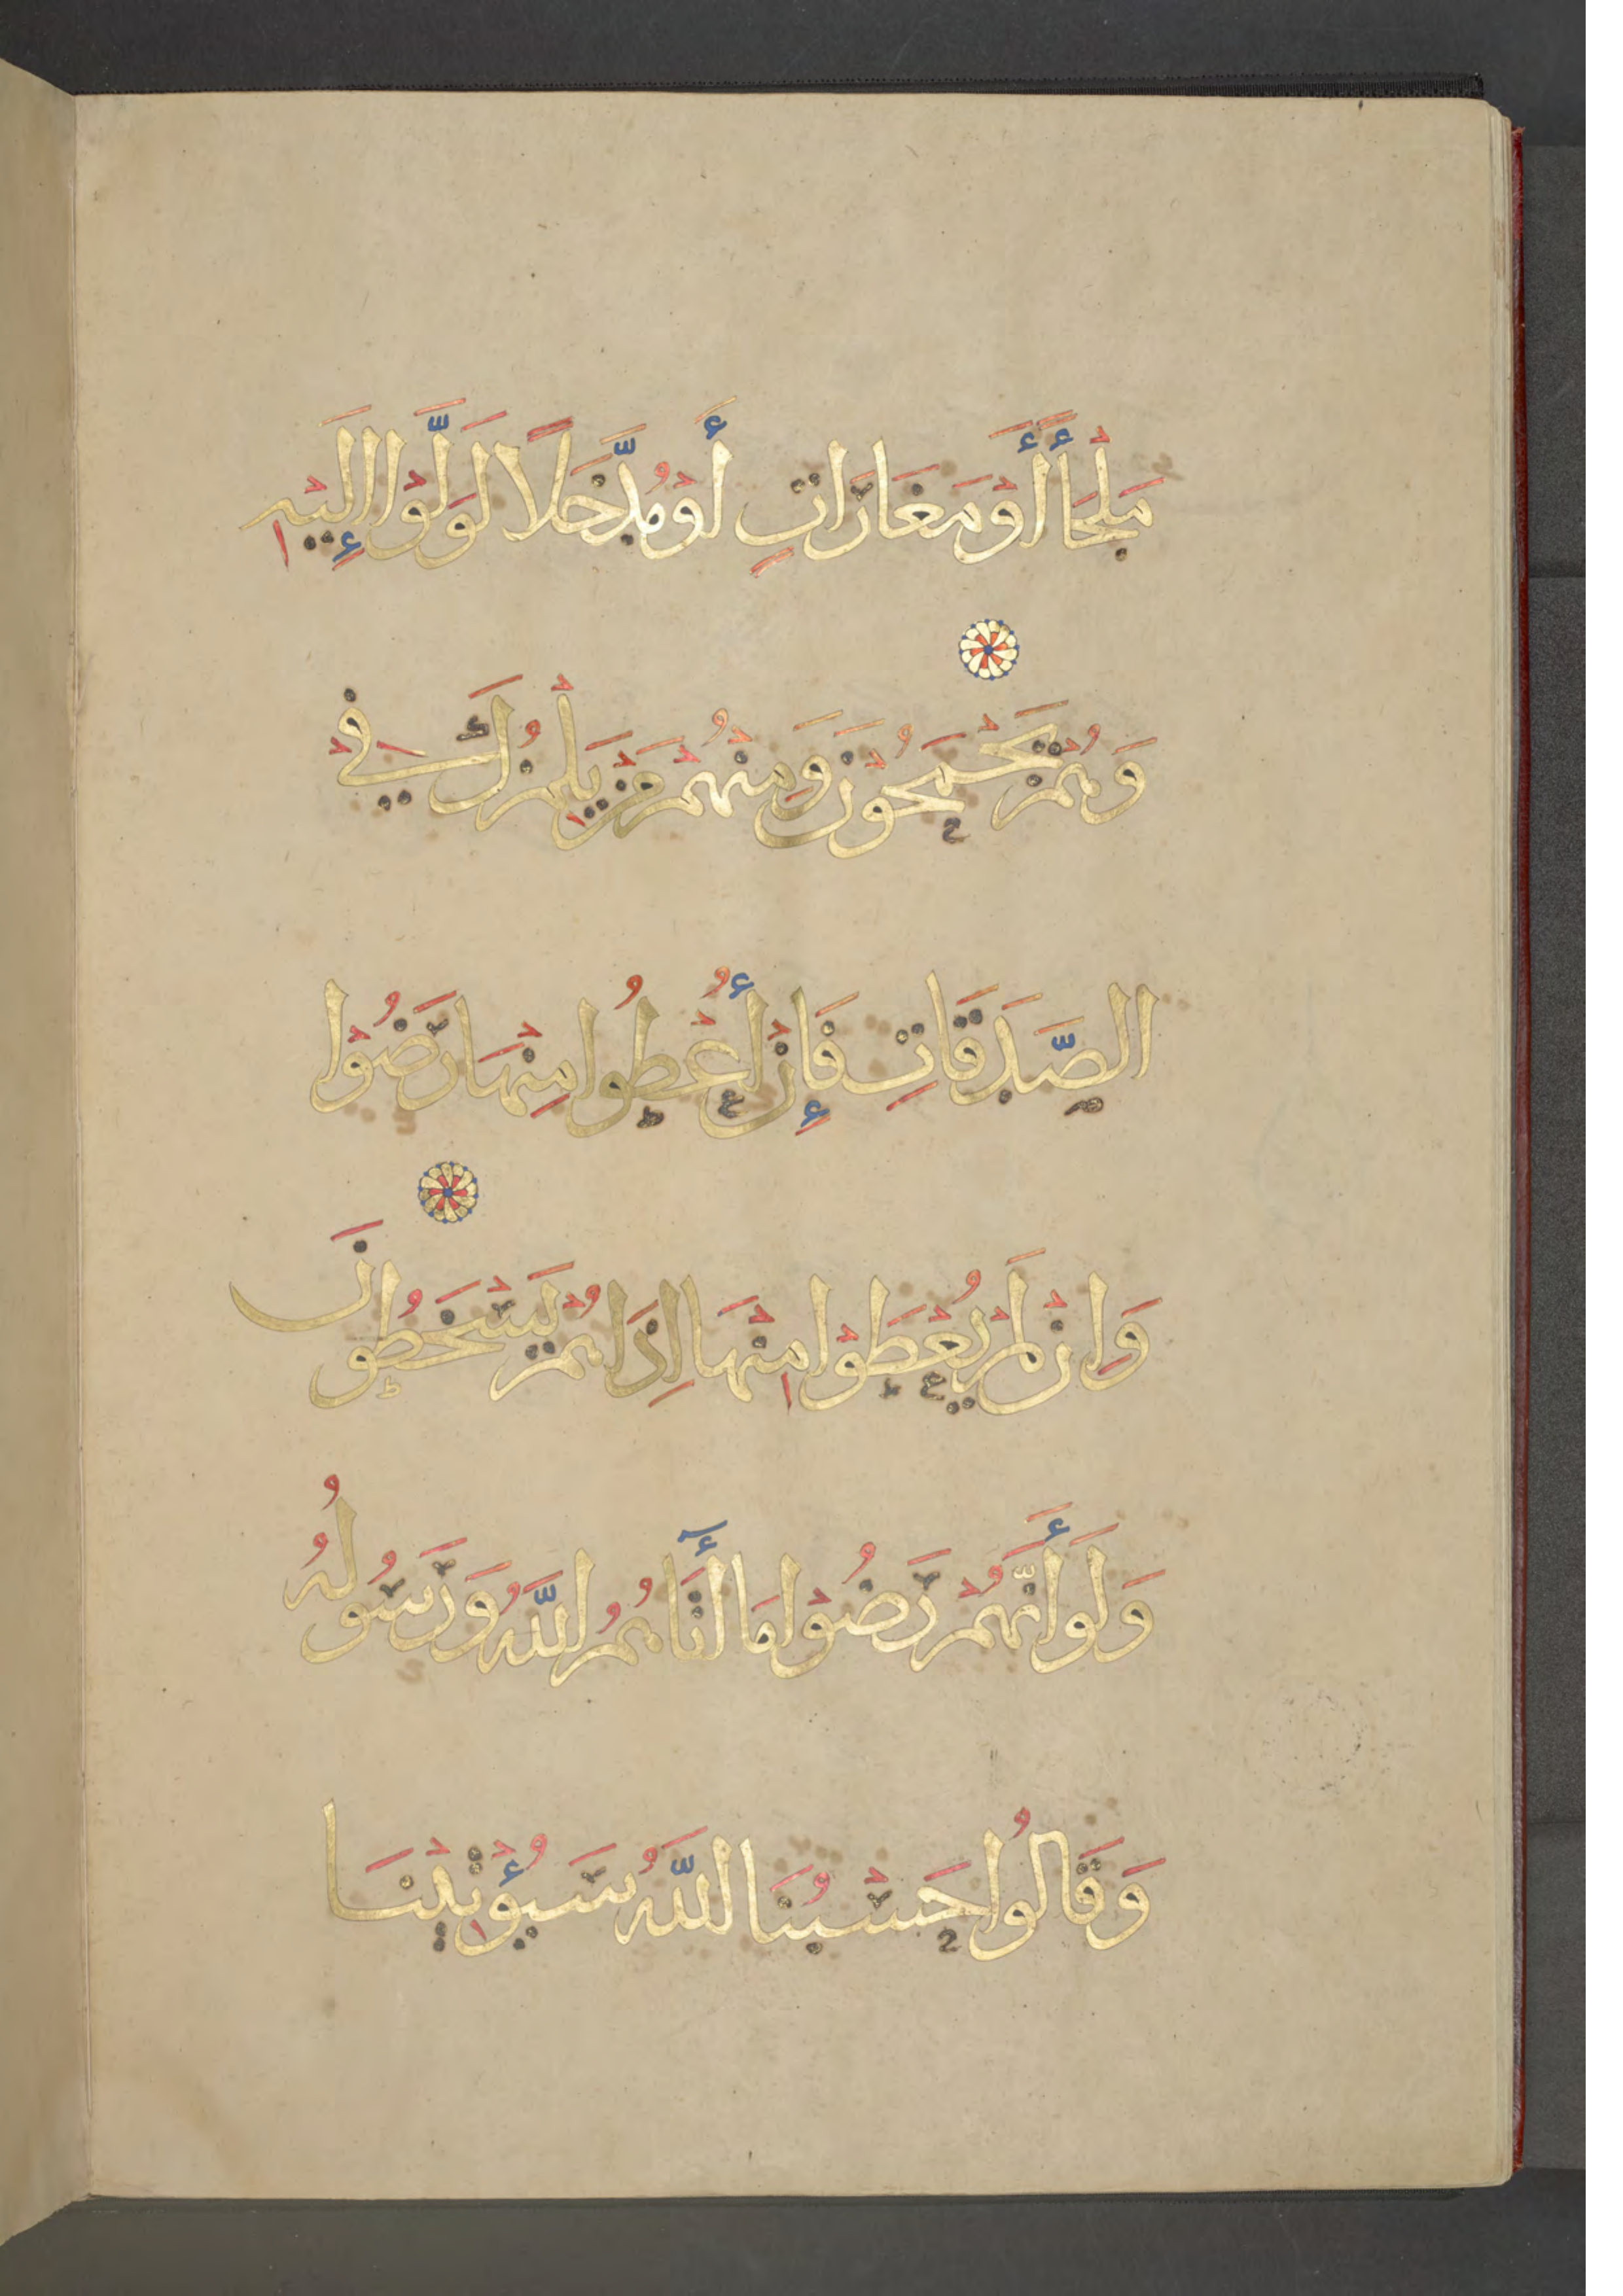 مَلْجَأً أَوْ مَغَارَاتٍ أَوْ مُدَّخَلًا لَوَلَّوْا إِلَيْهِ
وَهُمْ يَجْمَحُونَ وَمِنْهُمْ مَنْ يَلْمِزُكَ فِي
الصَّدَقَاتِ فَإِنْ أُعْطُوا مِنْهَا رَضُوا
وَإِنْ لَمْ يُعْطَوْا مِنْهَا إِذَا هُمْ يَسْخَطُونَ
وَلَوْ أَنَّهُمْ رَضُوْا مَا أَتَاهُمُ اللَّهُ وَرَسُولُهُ
وَقَالُوا حَسْبُنَا اللَّهُ سَيُؤْتِينَا